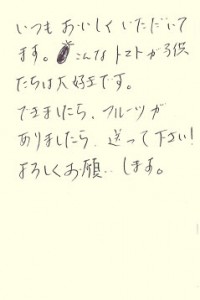 いつもおいしくいただいて
ます。こんなトマトが子供
たちは大好きです。
できましたら、フルーツが
ありましたら、送って下さい!
よろしくお願いします。